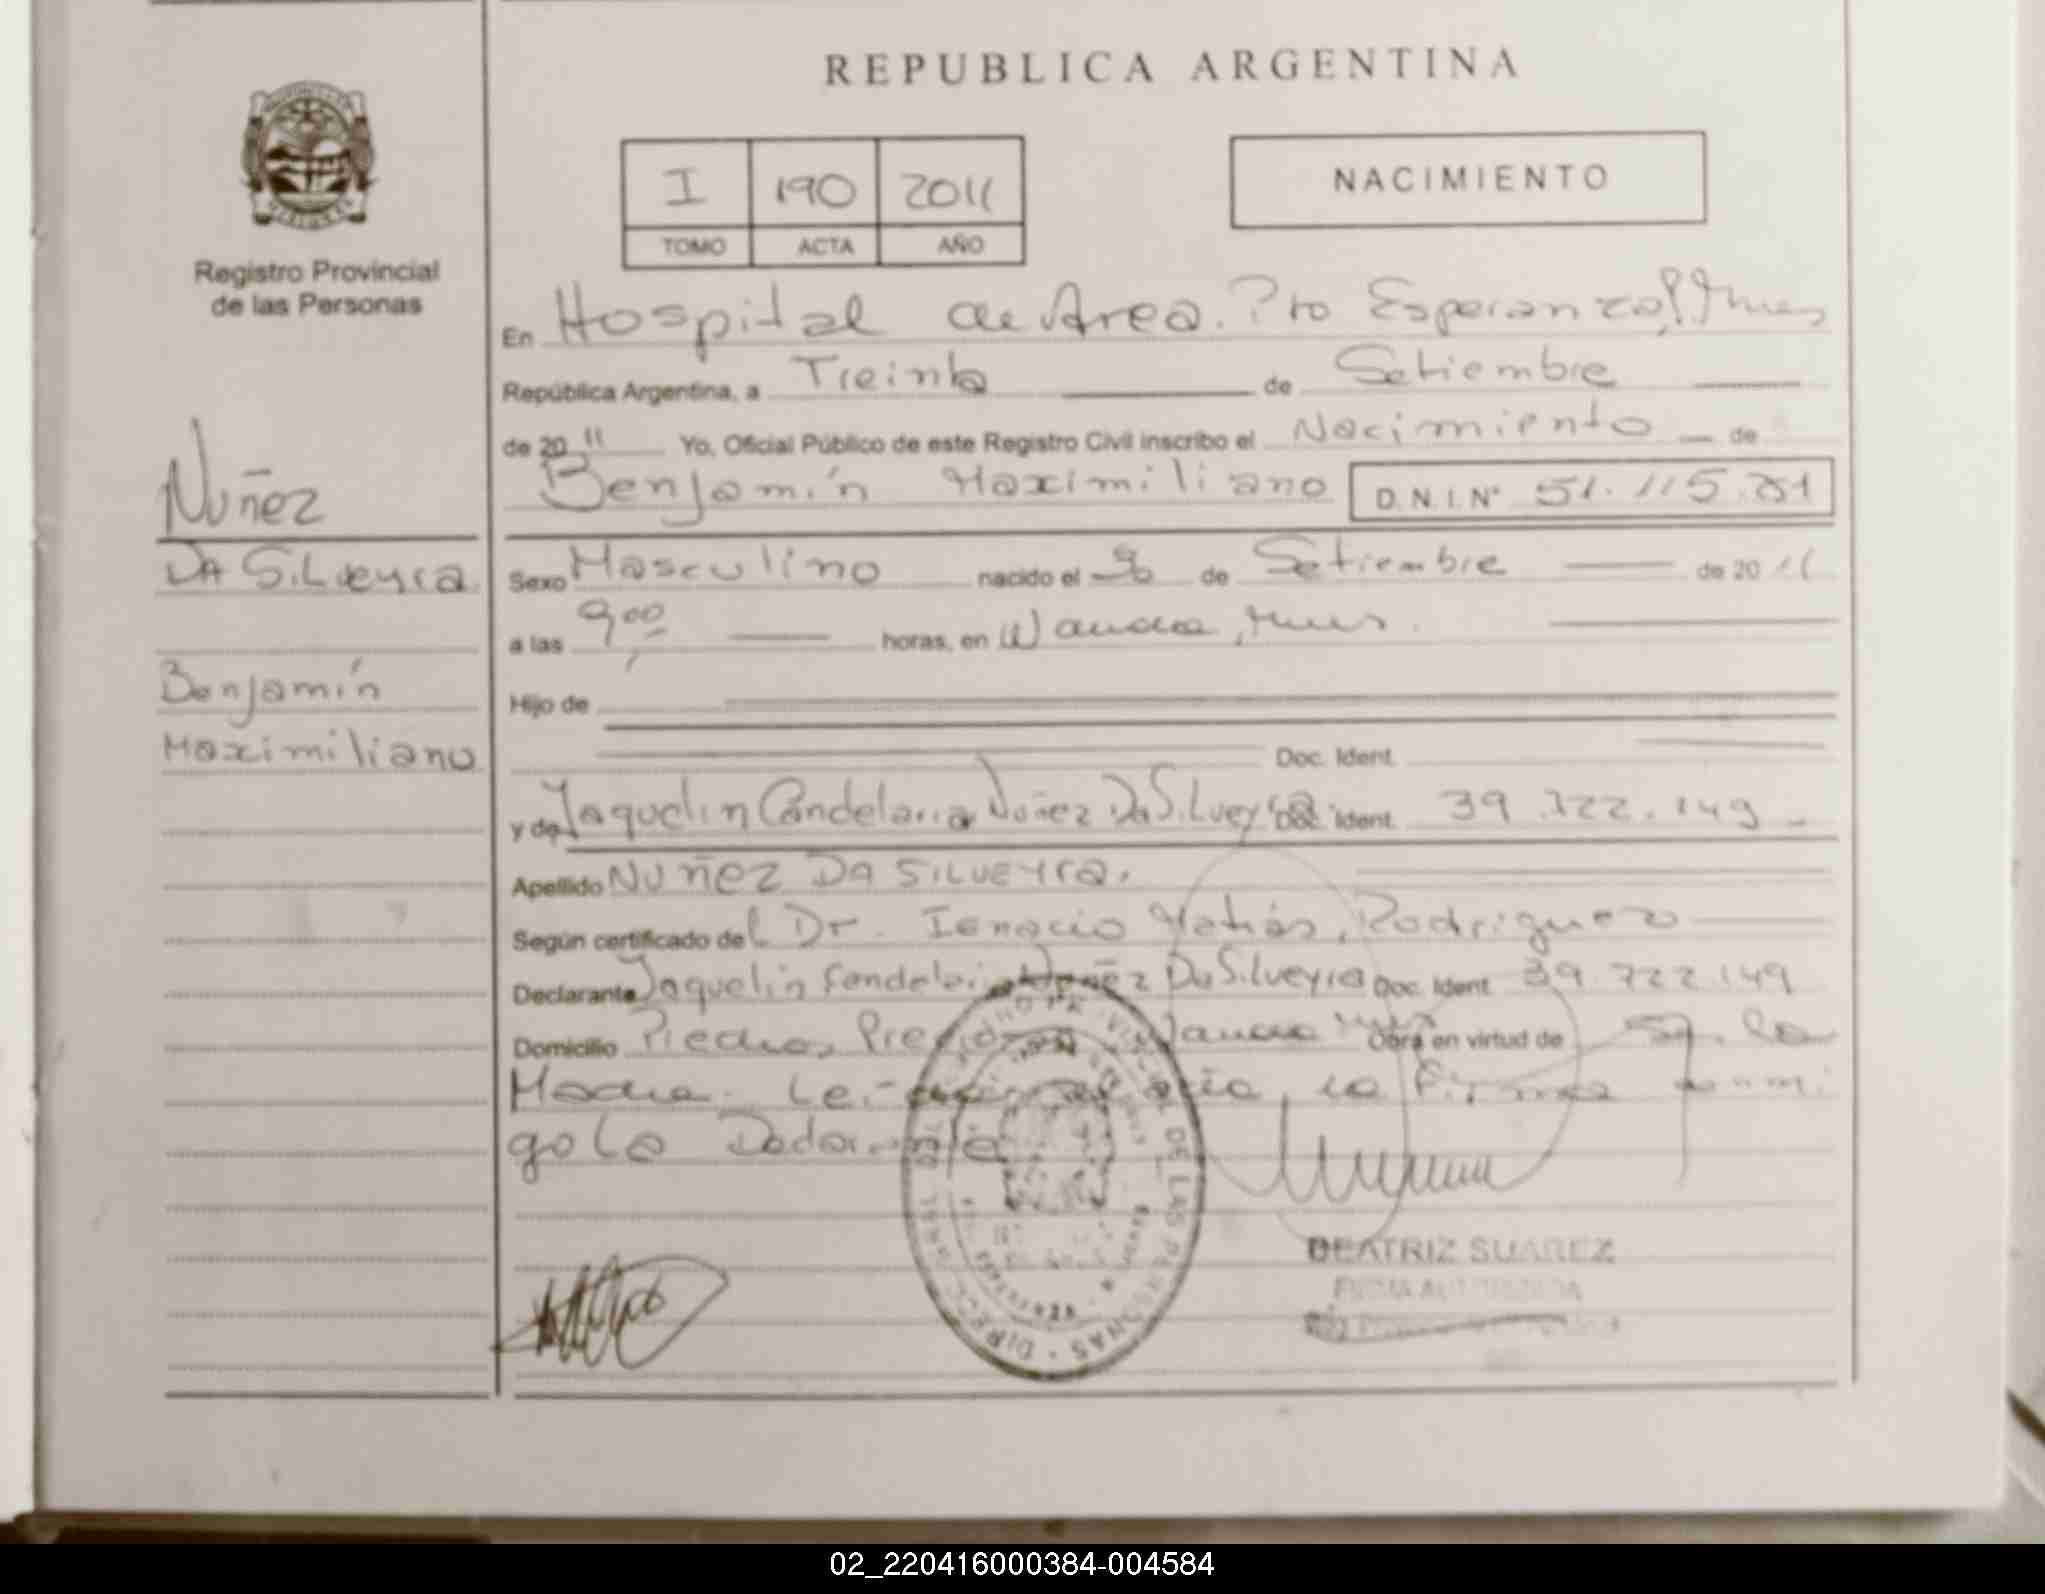 REPUBLICA ARGENTINA
Registro Provincial
de las Personas
I 190 2011
TOMO ACTA AÑO
NACIMIENTO
En Hospital de Area. Pto Esperanza,
República Argentina, a Treinta de Setiembre
de 2011 Yo, Oficial Público de este Registro Civil inscribo el Nacimiento de
Benjamín Maximiliano D.N.I.N°
Nuñez
Da Silveyra
Benjamín
Maximiliano
Sexo Masculino nacido el de Setiembre de 2011
a las 9,00 horas, en Wanda,
Hijo de
Doc. Ident.
y de Jaquelin Candelaria Nuñez Da Silveyra Doc. Ident. 39.722.149
Apellido Nuñez Da Silveyra.
Según certificado del Dr. Ignacio Matías, Rodriguez
Declarante Jaquelin Candelaria Nuñez Da Silveyra Doc. Ident. 39.722.149
Domicilio Wanda Obra en virtud de la
la firma conmi
go la
DE LAS PERSONAS
BEATRIZ SUAREZ
FIRMA AUTORIZADA
02_220416000384-004584